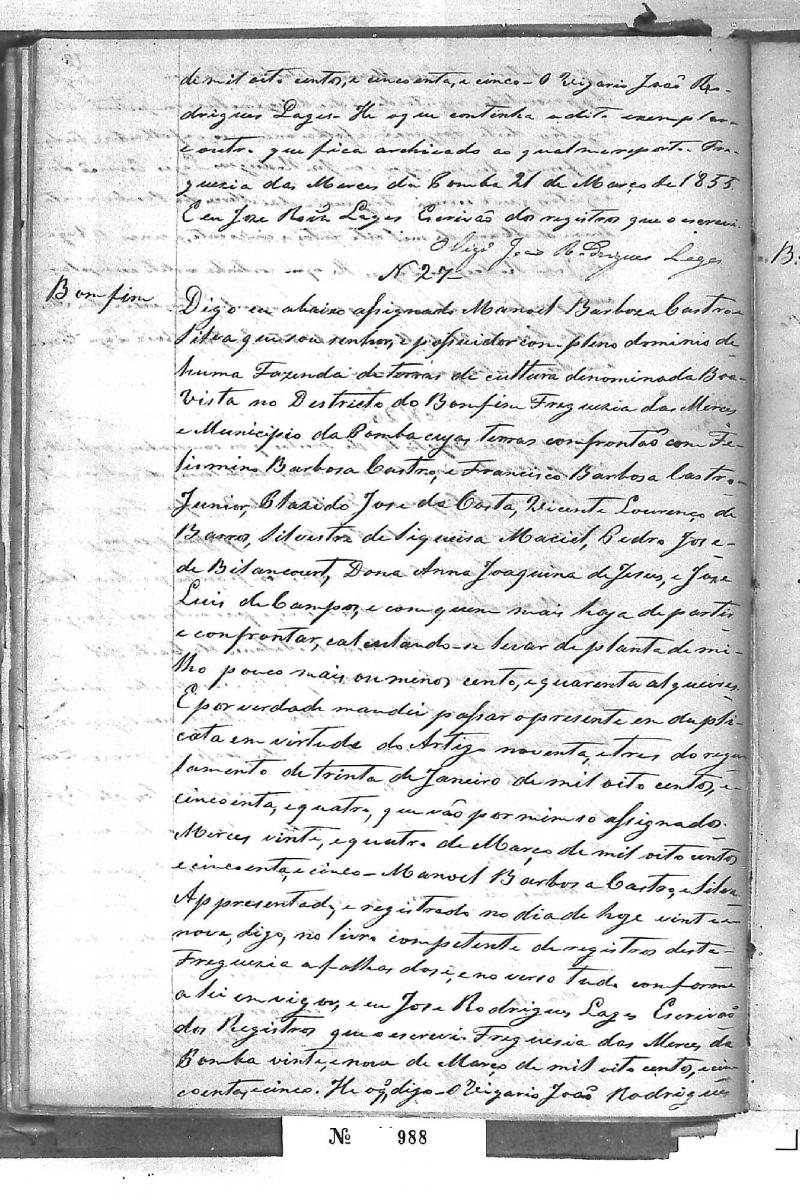 de mil oito centos, e cincoenta, e cinco - O Vigario João Ro-
drigues Lages - He o que continha a dito exemplar
e outro que fica archivado ao qual me reporto. Fre-
guezia das Merces da Pomba 21 de Março de 1855.
E eu Joze Roiz Lages Escrivão dos registros que o escrevi.
O Vigº João Rodrigues Lages
N 27-
Bomfim
Digo eu abaixo assignado Manoel Barboza Castro e
Silva que sou senhor, e possuidor com pleno dominio de
huma Fazenda de terras de cultura denominada Boa-
Vista no Destricto do Bomfim Freguezia das Merces
e Municipio da Pomba cujas terras confrontaõ com Fe-
lismino Barbosa Castro, e Francisco Barbosa Castro
Junior, Plazido Jose da Costa, Vicente Lourenço de
Barros, Silvestre de Siqueira Maciel, Pedro Jose-
de Bitancourt, Dona Anna Joaquina de Jesus, e Joze
Luis de Campos, e com quem mais haja de partir
e confrontar, calculando-se levar de planta de mi-
lho pouco mais ou menos cento, e quarenta alqueires.
E por verdade mandei passar o presente em dupli-
cata em virtude do Artigo noventa, e tres do regu-
lamento de trinta de Janeiro de mil oito centos, e
cincoenta, e quatro, que vão por mim so assignado.
Merces vinte, e quatro de Março de mil oito centos
e cincoenta, e cinco - Manoel Barbosa Castro, e Silva
Appresentado, e registrado no dia de hoje vinte e
nove, digo, no livro competente de registros desta
Freguezia a folhas dose, e no verso tudo conforme
a lei em vigor, e eu Jose Rodrigues Lages Escrivaõ
dos Registros que o escrevi. Freguesia das Merces da
Pomba vinte, e nove de Março de mil oito centos, e cin-
coenta, e cinco. He o q, digo - O Vigario João Rodrigues
Nº 988